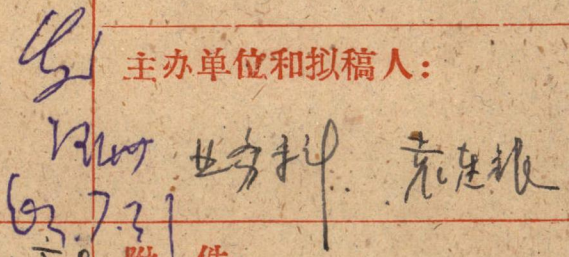 发
主办单位和拟稿人:
业务科 袁
63.7.31
附 件